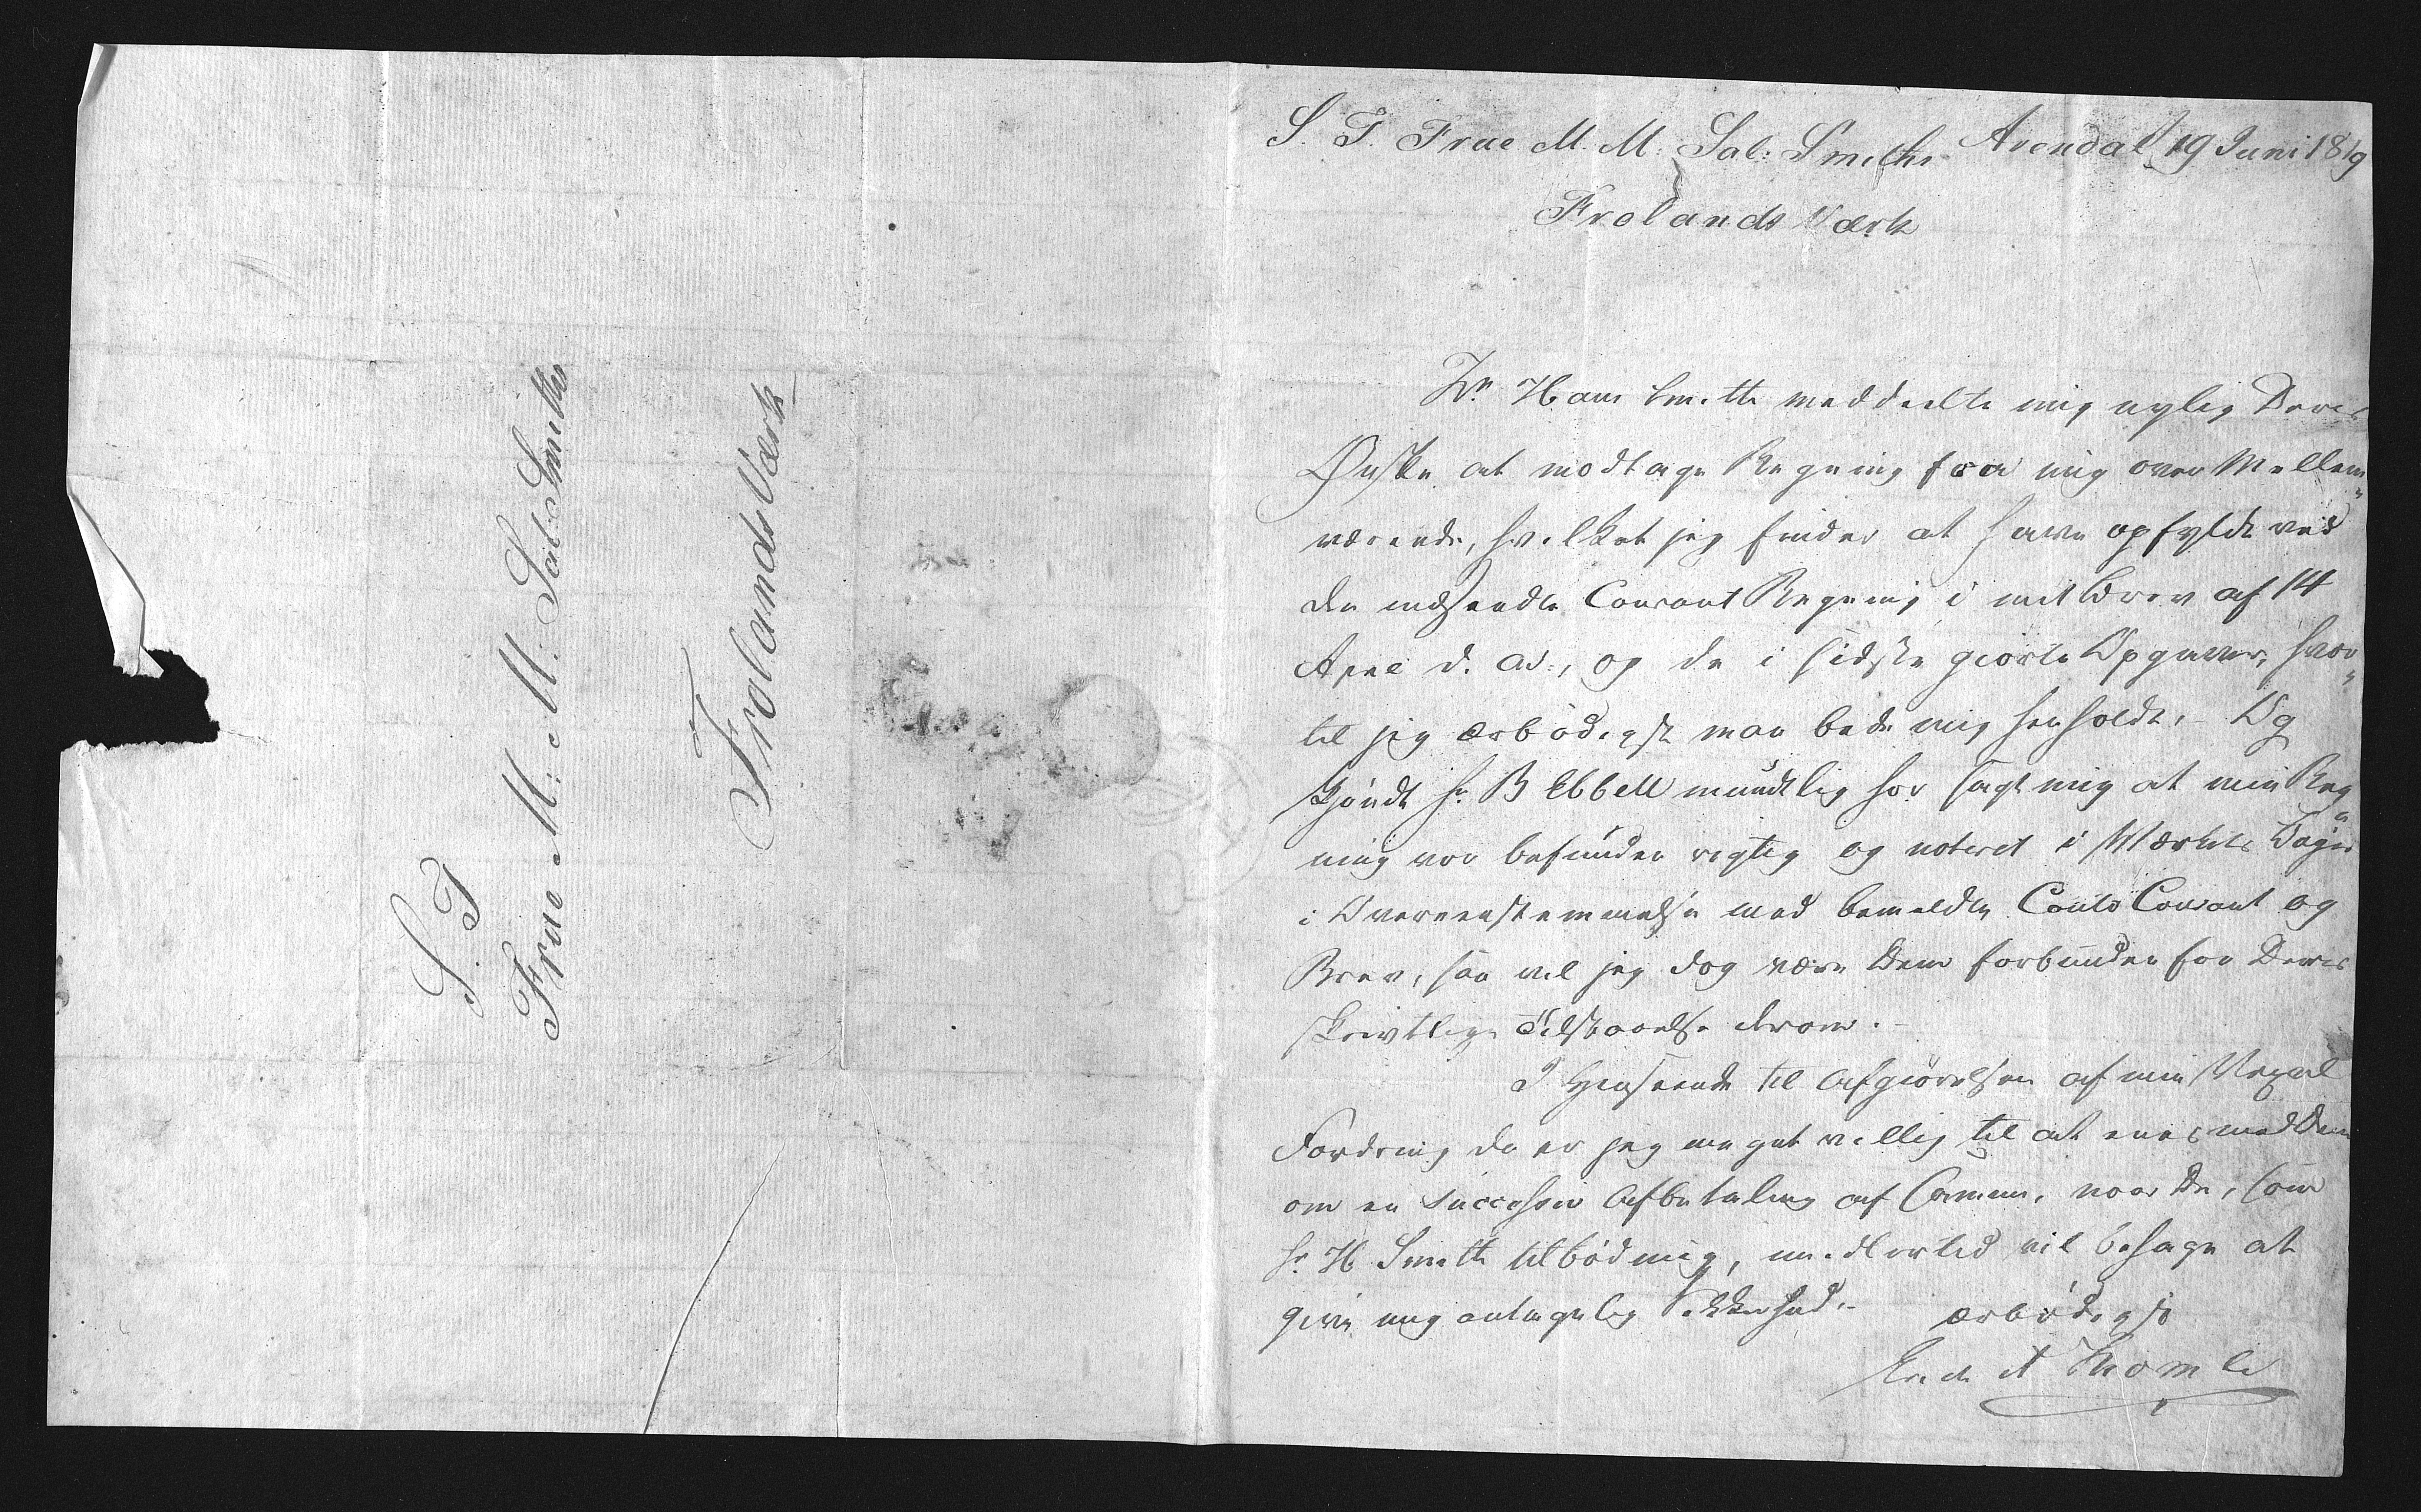 S. T.
Frue M: M: Sal: Smiths
Frolands Værk
S. T. Frue M. M: Sal: Smiths Arendal 19 Juni 1819
Frolands Værk
Hr. Hans Smith meddeelte mig nylig Deres
Ønske at modtage Regning fra mig over Mellem„
værende, hvilket jeg finder at have opfyldt ved
den indsendte Courant Regning i mit Brev af 14
April d. A:, og de i sidste giorte Opgaver, hvor„
til jeg ærbødigst maa bede mig henholdt. – Og
skjøndt Hr. B Ebbell mundtlig har sagt mig at min Reg„
ning var befunden rigtig og noteret i Værkets Bøger
i Overeenstemmelse med bemeldte Conto Courant og
Brev, saa vil jeg dog være Dem forbunden for Deres
skrivtlige Tilstaaelse derom. –
I Henseende til Afgiørelsen af min Vexel
Fordring da er jeg meget villig til at enes med Dem
om en successiv Afbetaling af Samme, naar De, som
Hr. H Smith tilbød mig, imidlertid vil behage at
give mig antagelig Sikkerhed. – ærbødigst
A Thomle